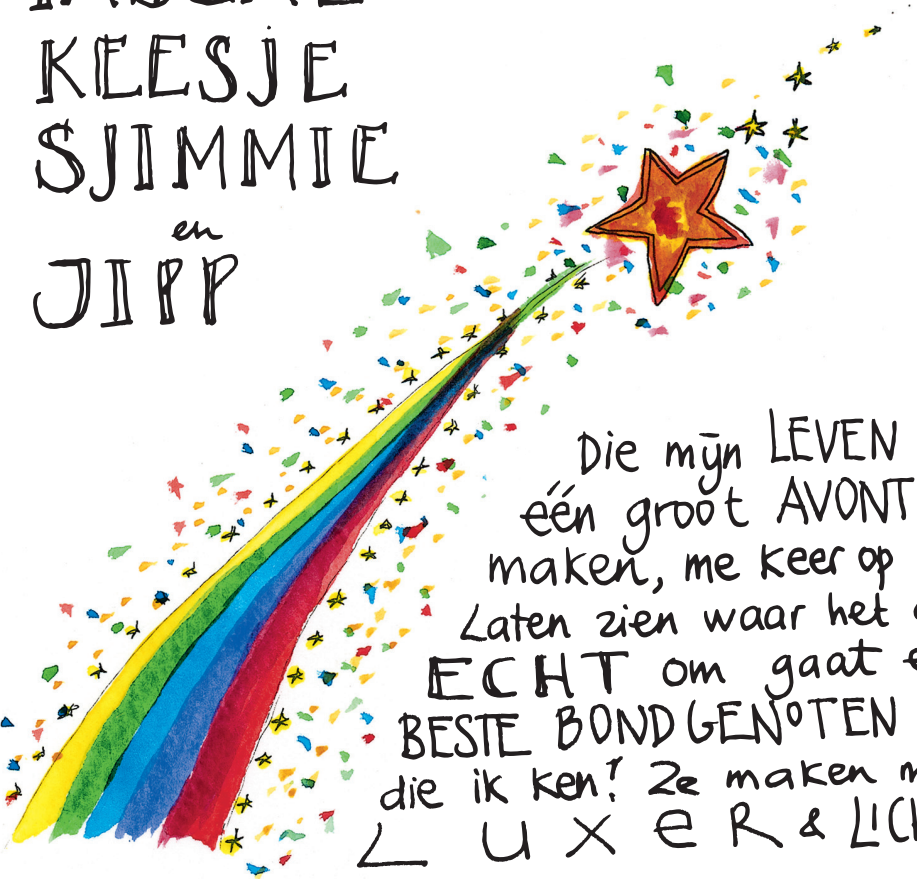 KEESJE
SJIMMIE
en
JIPP
Die mijn LEVEN
één groot AVONT
maken, me keer op
Laten zien waar het
ECHT om gaat
BESTE BONDGENOTEN
die ik ken! Ze maken
LUXER & LICH